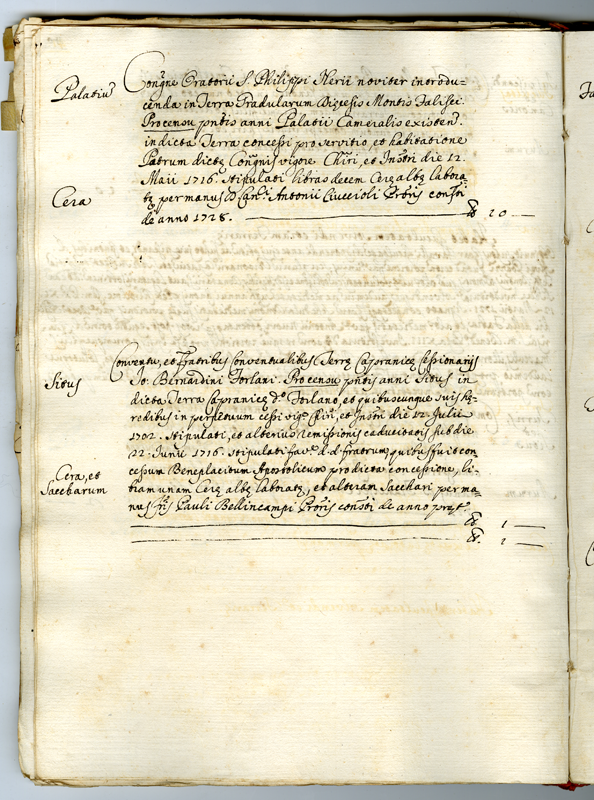 Palatiū
Congne Oratorii S. Philippi Nerii noviter introdu=
cenda in Terra Gradularum Dioecesis Montis Falisci.
Pro censu pntis anni Palatii Cameralis existen.
in dicta Terra concessi pro servitio, et habitatione
Patrum dictę Congnis vigore Chiri, et Instri die 12.
Maii 1716. stipulati libras decem Cerę albę labora
Cera
tę per manus D. Can.ci Antonii Ciuccioli Prōris consti
de anno 1728. ℔ 10
Conventu, et Fratribus Conventualibus Terrę Capranicę Cessionarijs
Situs
Jo: Bernardini Forlani. Pro censu pntis anni Situs in
dicta Terra Capranicę d.o Forlano, et quibuscunque suis hę=
redibus in perpetuum cessi vig.e Chiri, et Instri die 12. Julii
1702. stipulati, et alterius remissionis caducitatis sub die
22. Junii 1716. stipulati fav.e d.d. fratrum, quibus fuit con
cessum Beneplacitum Apostolicum pro dicta concessione, li=
Cera, et
Saccharum
bram unam Cerę albę laboratę, et alteram Sacchari per ma=
nus Fris Pauli Bellincampi Prōris consti de anno prt.o
℔ 1
℔. 1